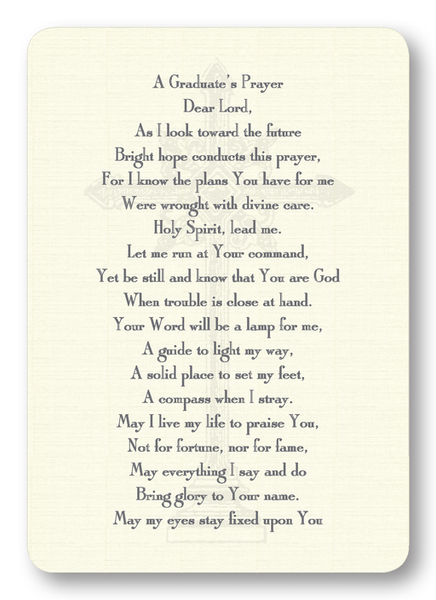 A Graduate's Prayer
Dear Lord,
As I look toward the future
Bright hope conducts this prayer,
For I know the plans You have for me
Were wrought with divine care.
Holy Spirit, lead me.
Let me run at Your command,
Yet be still and know that You are God
When trouble is close at hand.
Your Word will be a lamp for me,
A guide to light my way,
A solid place to set my feet,
A compass when I stray.
May I live my life to praise You,
Not for fortune, nor for fame,
May everything I say and do
Bring glory to Your name.
May my eyes stay fixed upon You